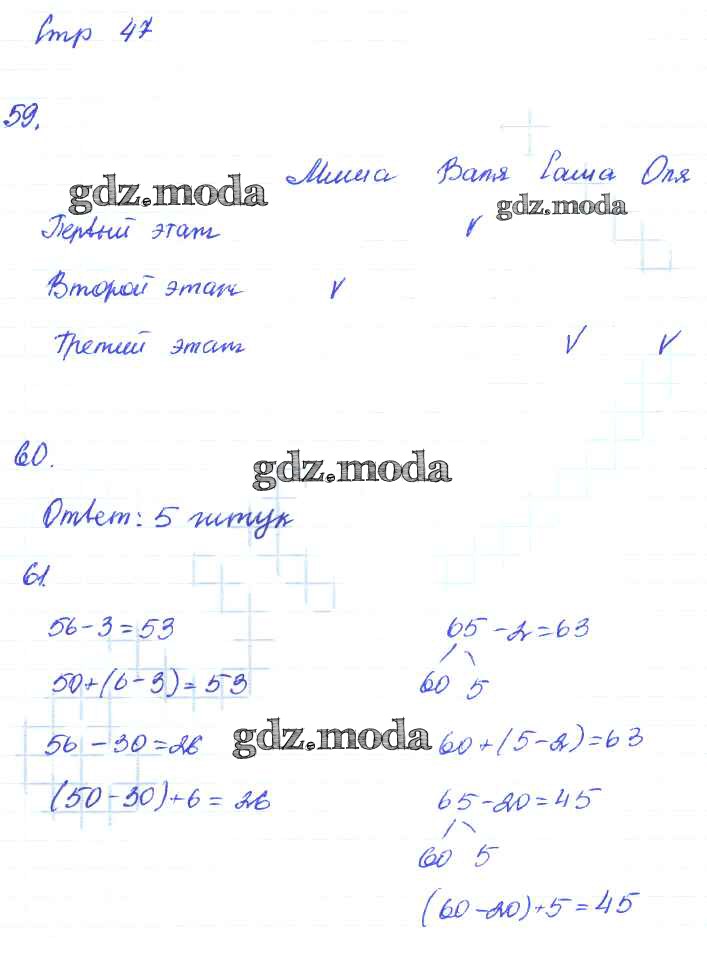 Стр 47
59.
Миша Валя Саша Оля
gdz.moda gdz.moda
Первый этап v
Второй этап v
Третий этап v v
60.
gdz.moda
Ответ: 5 штук
61.
56-3=53 65-2=63
60 5
50+(6-3)=53
56-30=26 gdz.moda 60+(5-2)=63
(50-30)+6=26 65-20=45
60 5
(60-20)+5=45